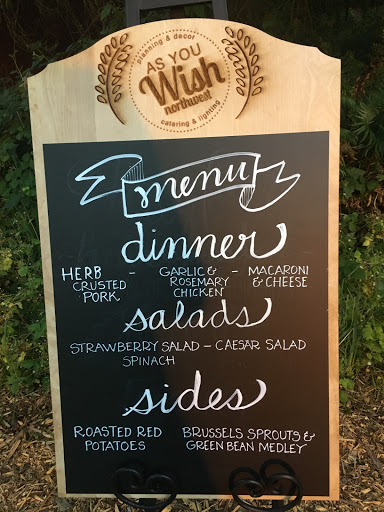 planning & decor
AS YOU
Wish
northwest
catering & lighting
menu
dinner
HERB - GARLIC & - MACARONI
CRUSTED ROSEMARY & CHEESE
PORK CHICKEN
salads
STRAWBERRY SALAD - CAESAR SALAD
SPINACH
sides
ROASTED RED BRUSSELS SPROUTS &
POTATOES GREEN BEAN MEDLEY